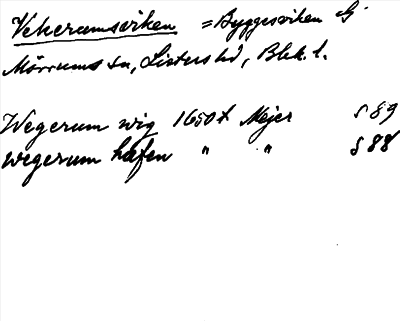 Vekeramsviken = Byggesviken G
Mörrums sn, Listers hd, Blek. l.
Wegerum wig 1650t Mejer S 89
wegerum hafen " " S 88